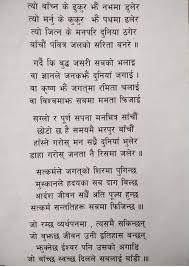 त्यो बाँच्न के डुकुर झैं नभमा डुलेर
त्यो मर्नु के कुकुर झैं पथमा डुलेर
त्यो जित्न के मनपरि दुनिया ठगेर
बाँचौं पवित्र जलको सरिता बनेर ॥
गर्दै कि बुद्ध जसरी सबको भलाई
वा ज्ञानले जनकझैं दुनियाँ जगाई ।
वा कृष्ण झैं जगत्‌मा रमिता चलाई
वा विश्वमाझ सबमा ममता फिजाई
सग्लो र पूर्ण सपना मनभित्र साँचौं
छोटो छ है समयमै भरपूर बाँचौं
हाँस्ने गरोस् मन सधैं दुनियाँ भुलेर
डाहा गरोस् जनता नै रिसमा जलेर ॥
सत्कर्मले जगत्‌को शिरमा पुगिन्छ
मुस्कानले हृदयका सब दाग बिल्छ
आदर्श जीवन सधैं अति पूज्य हुन्छ
सत्कर्म सन्ततिहरू सबमा फिजिन्छ॥
जो रम्छ व्यर्थपनमा , त्यसमै सकिन्छन्
जो बुझ्छ जीवन उनी इतिहास बन्छन्
भन्नेछ ईश्वर पनि उसको अगाडि
जो बाँच्छ स्वच्छ दिलले सबलाई बाँडी ॥